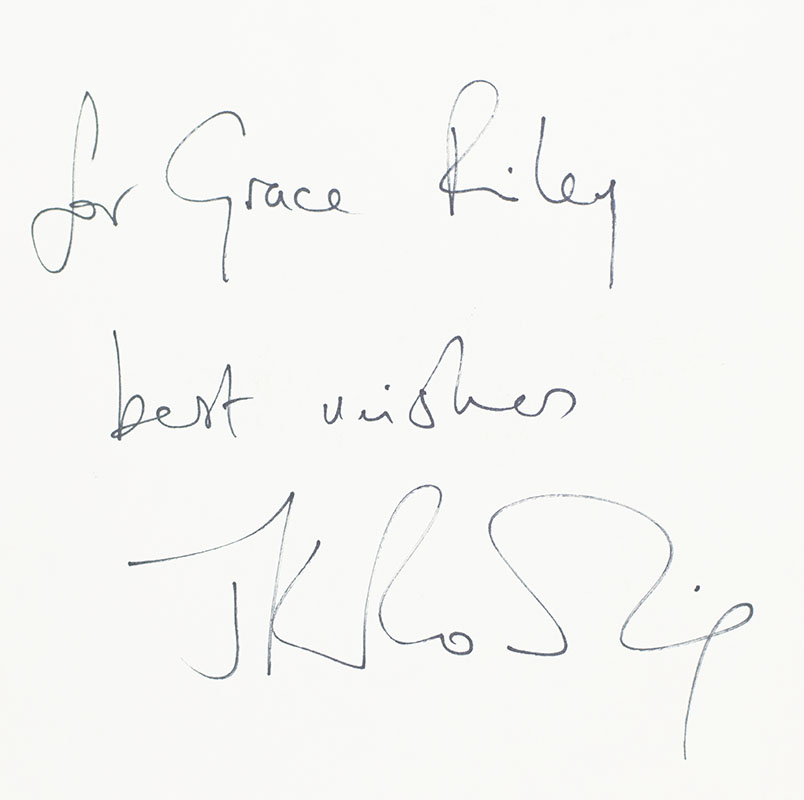 for Grace Riley
best wishes
JK Rowling